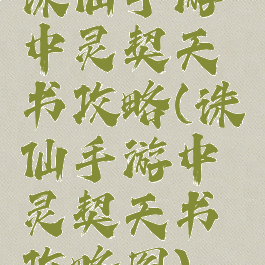 诛仙手游
中灵契天
书攻略(诛
仙手游中
灵契天书
攻略图)